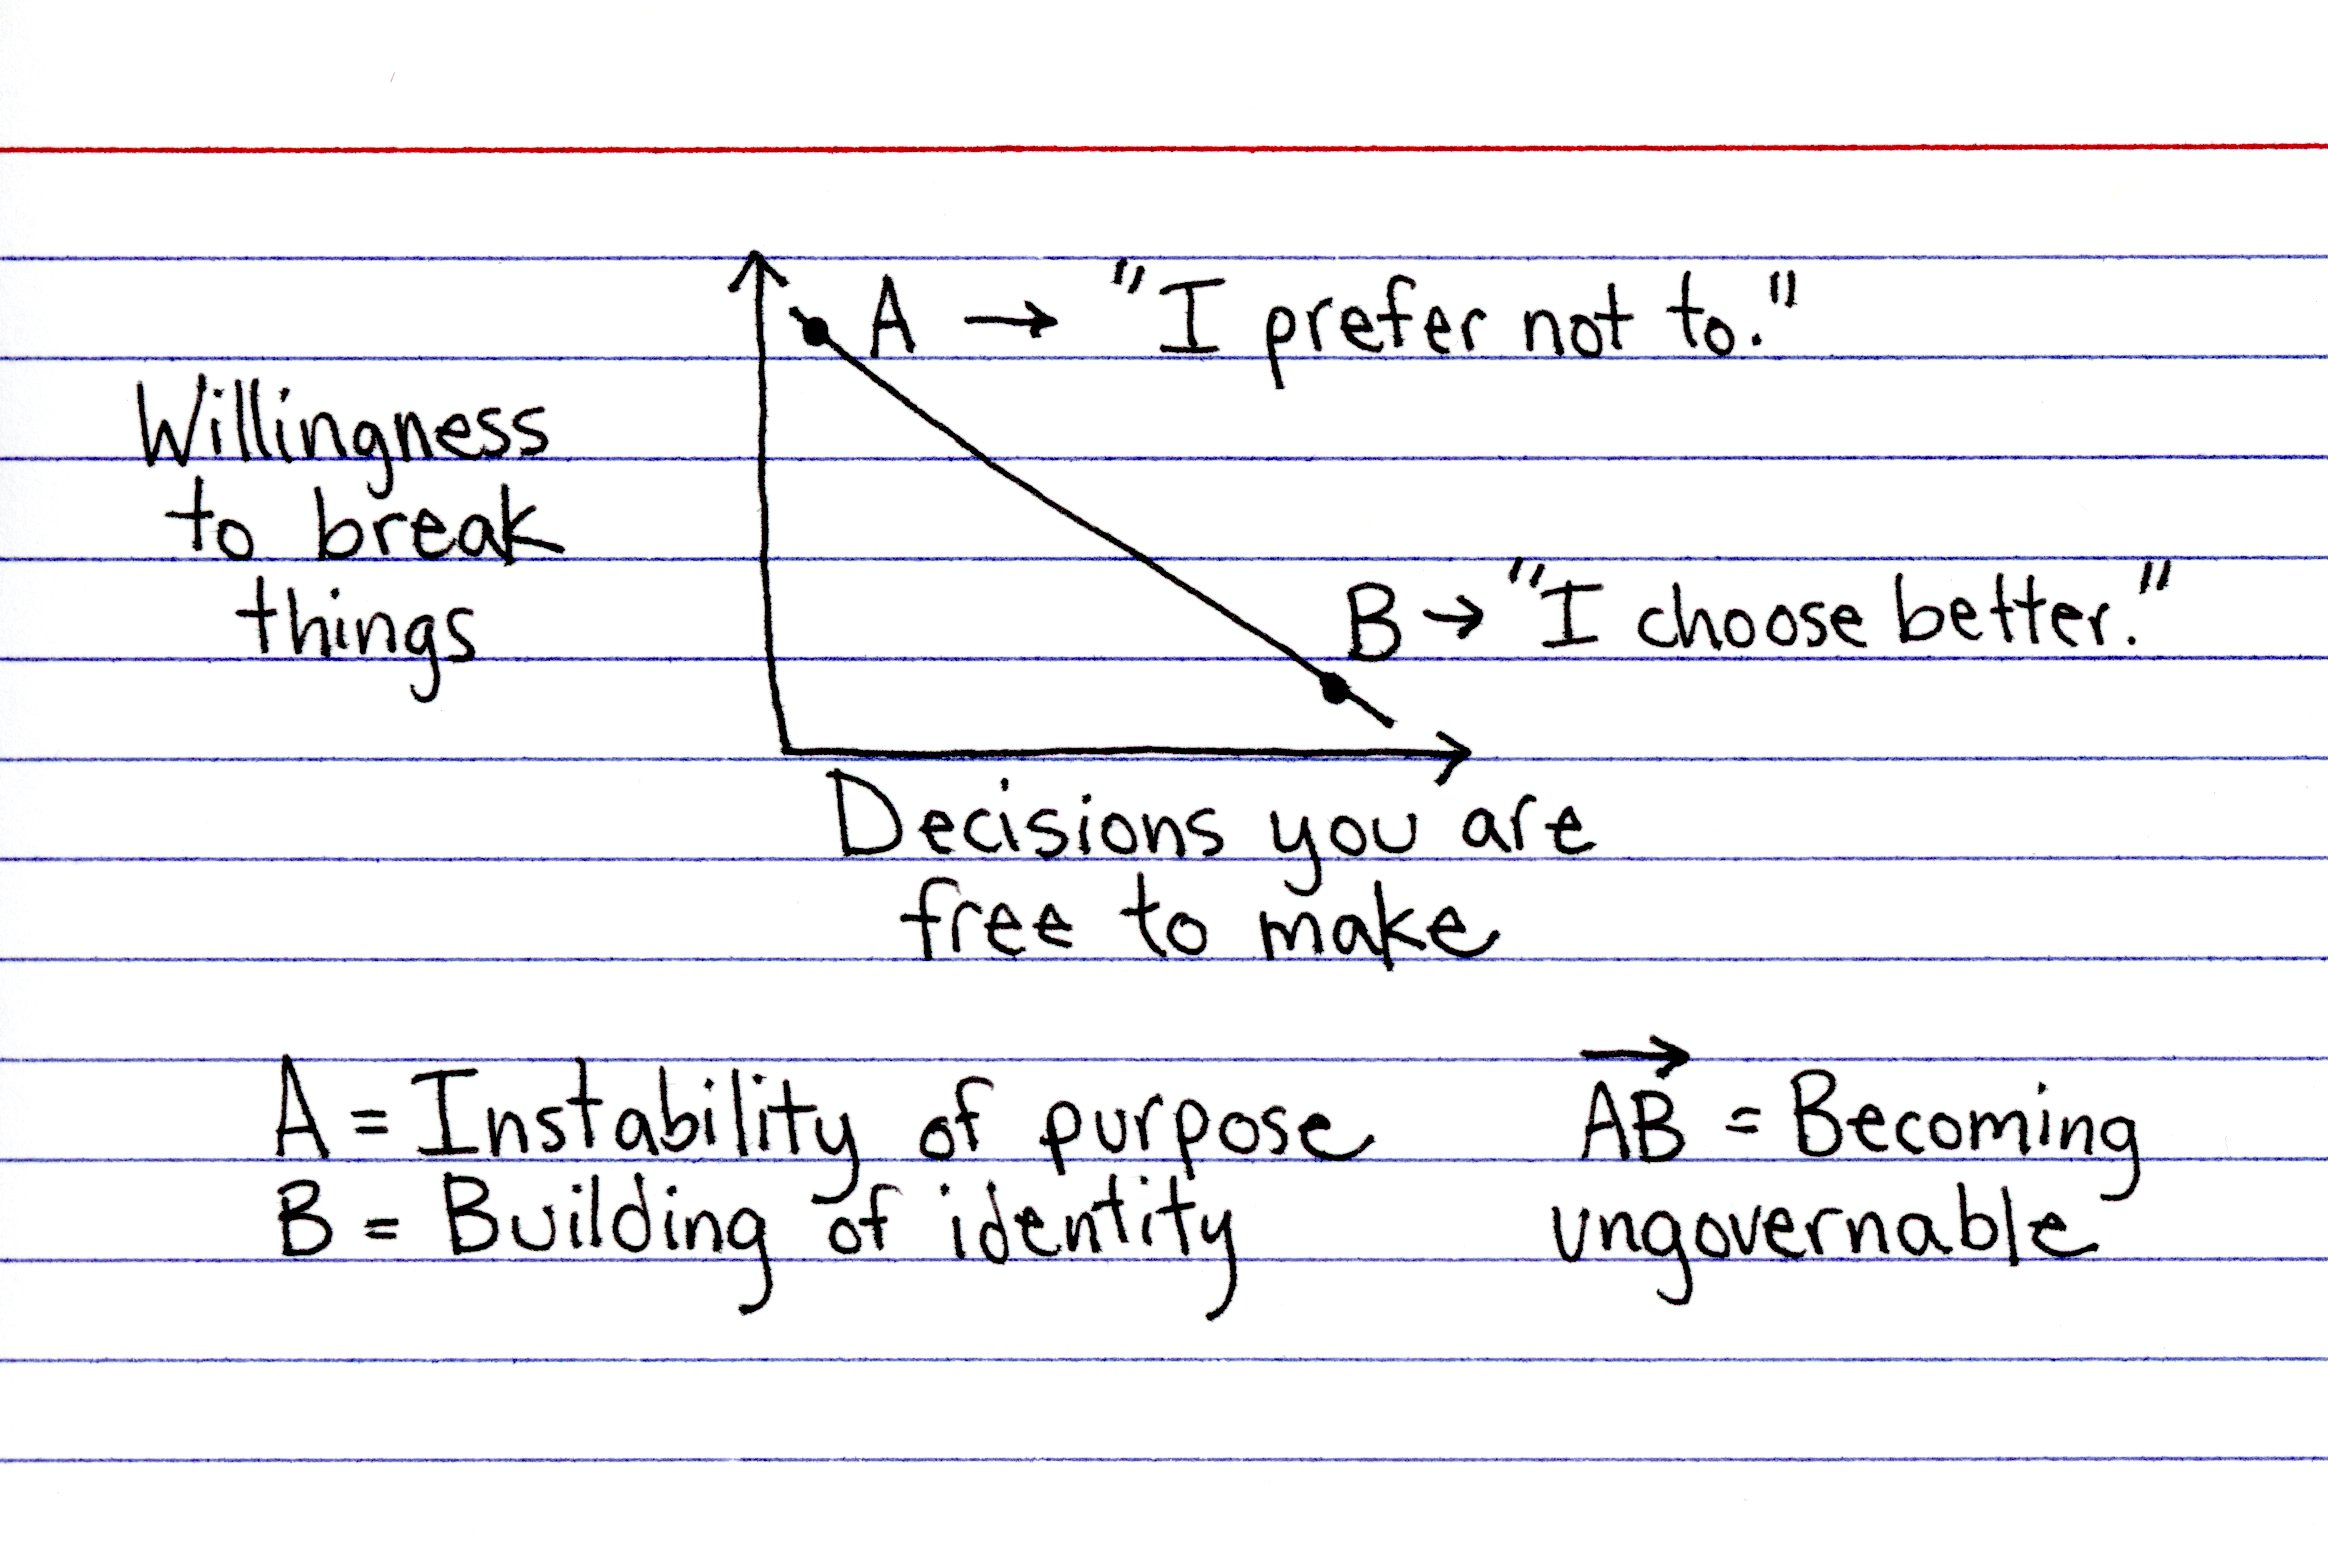 A → "I prefer not to."
Willingness
to break
things
B → "I choose better."
Decisions you are
free to make
A = Instability of purpose
B = Building of identity
AB = Becoming
ungovernable